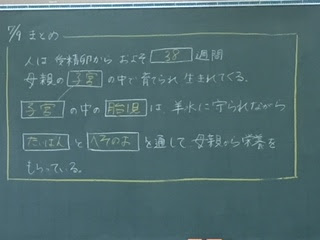 7/9 まとめ
人は 受精卵から およそ 38 週間
母親の 子宮 の中で 育てられ 生まれてくる。
子宮 の中の 胎児 は、羊水に守られながら
たいばん と へそのお を通して 母親から栄養を
もらっている。